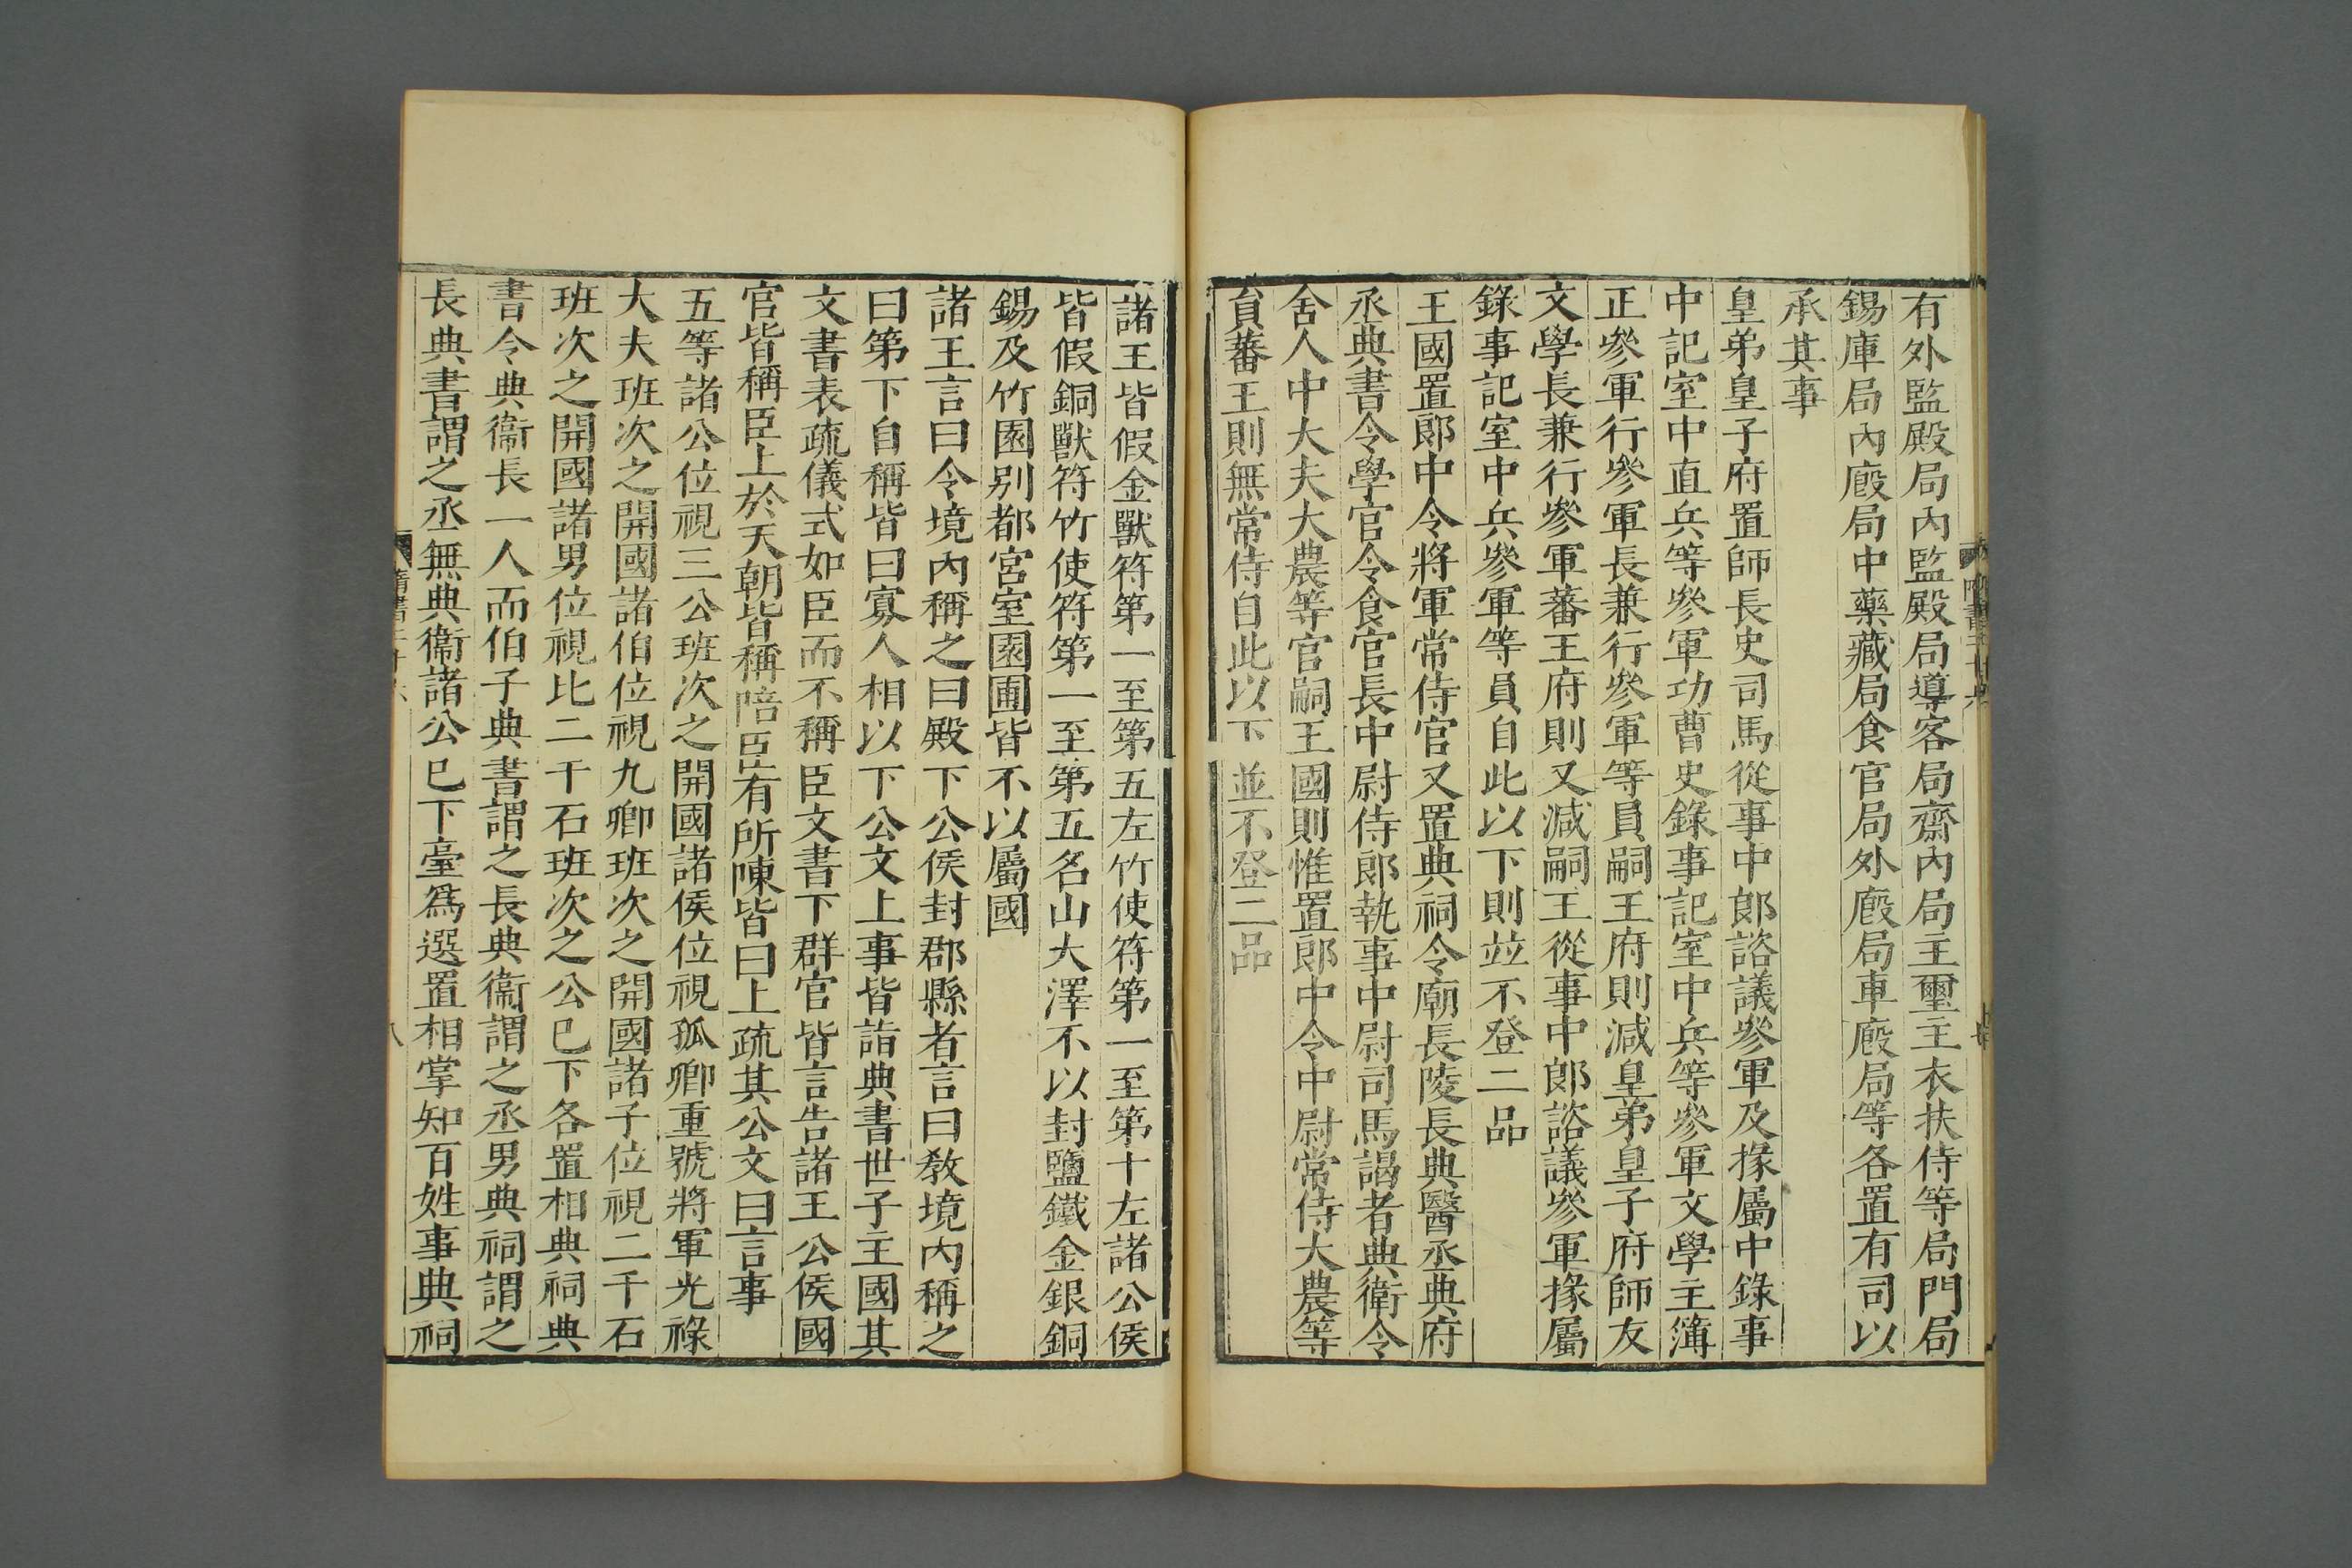 有外監殿局內監殿局導客局齋內局主璽主衣扶侍等局門局
錫庫局內廄局中藥藏局食官局外廄局車廄局等各置有司以
承其事
皇弟皇子府置師長史司馬從事中郞諮議參軍及掾屬中錄事
中記室中直兵等參軍功曹史錄事記室中兵等參軍文學主簿
正參軍行參軍長兼行參軍等員嗣王府則減皇弟皇子府師友
文學長兼行參軍蕃王府則又減嗣王從事中郞諮議參軍掾屬
錄事記室中兵參軍等員自此以下則竝不登二品
王國置郞中令將軍常侍官又置典祠令廟長陵長典醫丞典府
丞典書令學官令食官長中尉侍郞執事中尉司馬謁者典衛令
舍人中大夫大農等官嗣王國則惟置郞中令中尉常侍大農等
員蕃王則無常侍自此以下並不登二品
諸王皆假金獸符第一至第五左竹使符第一至第十左諸公侯
皆假銅獸符竹使符第一至第五名山大澤不以封鹽鐵金銀銅
錫及竹園别都宮室園圃皆不以屬國
諸王言曰令境內稱之曰殿下公侯封郡縣者言曰敎境內稱之
曰第下自稱皆曰寡人相以下公文上事皆詣典書世子主國其
文書表疏儀式如臣而不稱臣文書下群官皆言告諸王公侯國
官皆稱臣上於天朝皆稱陪臣有所陳皆曰上疏其公文曰言事
五等諸公位視三公班次之開國諸侯位視孤卿重號將軍光祿
大夫班次之開國諸伯位視九卿班次之開國諸子位視二千石
班次之開國諸男位視比二千石班次之公已下各置相典祠典
書令典衞長一人而伯子典書謂之長典衞謂之丞男典祠謂之
長典書謂之丞無典衞諸公已下臺爲選置相掌知百姓事典祠
八